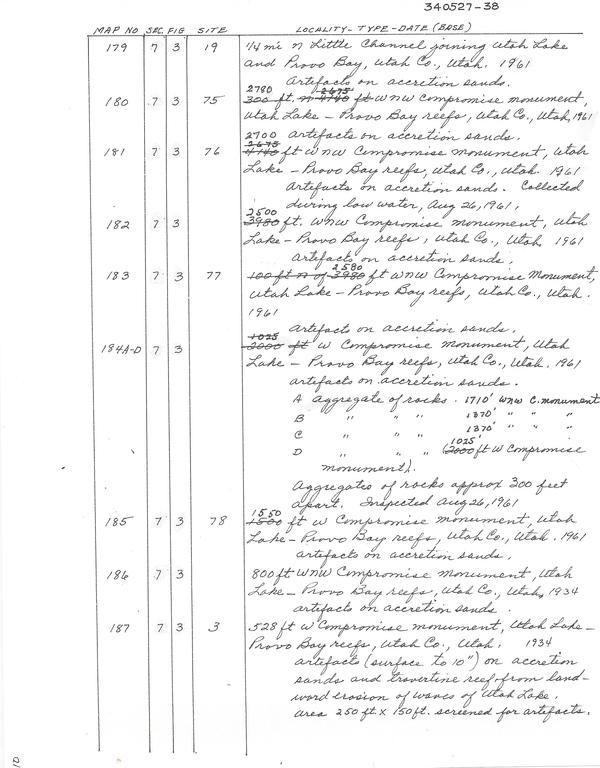 340527-38
MAP NO SEC. FIG SITE LOCALITY - TYPE - DATE (BASE)
179 7 3 19 1/4 mi n Little Channel joining Utah Lake
and Provo Bay, Utah Co., Utah. 1961
Artifacts on accretion sands.
2780 2675
180 7 3 75 300 ft. n 4740 ft WNW Compromise monument,
Utah Lake - Provo Bay reefs, Utah Co., Utah, 1961
2700 artefacts on accretion sands.
2675
181 7 3 76 4740 ft WNW Compromise monument, Utah
Lake - Provo Bay reefs, Utah Co., Utah. 1961
Artefacts on accretion sands. Collected
during low water, Aug 26, 1961.
2500
182 7 3 3980 ft. WNW Compromise monument, Utah
Lake - Provo Bay reefs, Utah Co., Utah 1961
artefacts on accretion sands.
2580
183 7 3 77 100 ft n of 3980 ft WNW Compromise Monument,
Utah Lake - Provo Bay reefs, Utah Co., Utah.
1961
artifacts on accretion sands.
1025
184A-D 7 3 2000 ft W Compromise monument, Utah
Lake - Provo Bay reefs, Utah Co., Utah. 1961
artefacts on accretion sands.
A aggregate of rocks. 1710' WNW C. monument
B " " " 1370' " " "
C " " " 1370' " " "
1025'
D " " (2000 ft W Compromise
monument).
Aggregates of rocks approx 300 feet
apart. Inspected Aug 26, 1961
1550
185 7 3 78 1500 ft W Compromise monument, Utah
Lake - Provo Bay reefs, Utah Co., Utah. 1961
artefacts on accretion sands.
186 7 3 800 ft WNW Compromise monument, Utah
Lake - Provo Bay reefs, Utah Co., Utah, 1934
artefacts on accretion sands.
187 7 3 3 528 ft W Compromise monument, Utah Lake -
Provo Bay reefs, Utah Co., Utah. 1934
artefacts (surface to 10") on accretion
sands and travertine reef from land-
ward erosion of waves of Utah Lake.
area 250 ft x 150 ft. screened for artefacts.